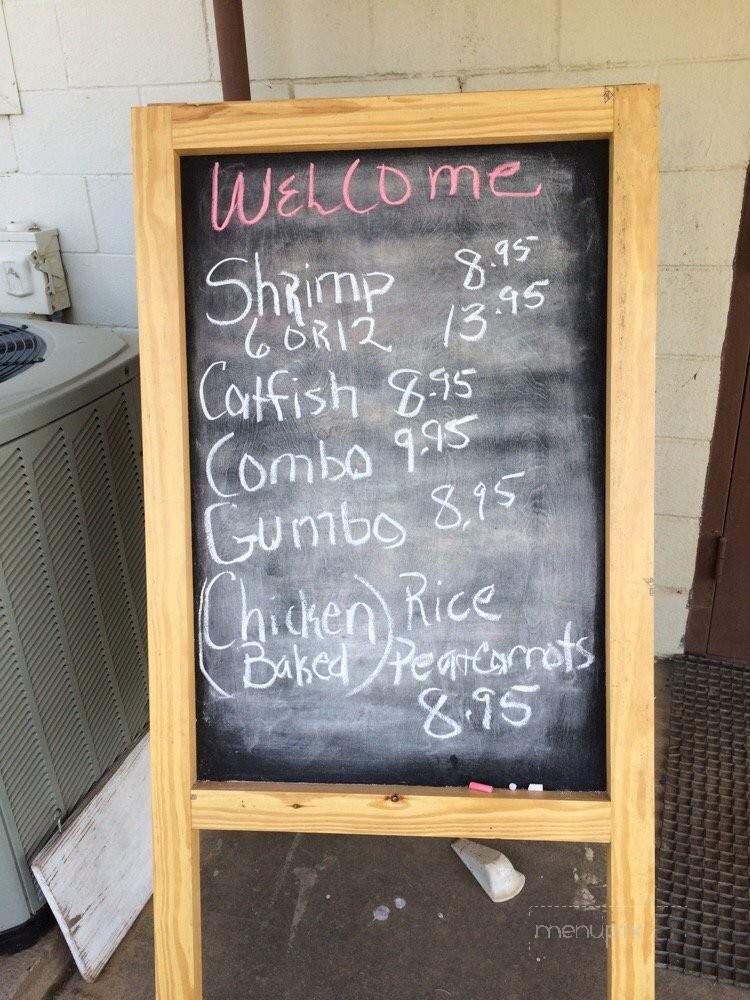 WELCOME
Shrimp 8.95
6 OR 12 13.95
Catfish 8.95
Combo 9.95
Gumbo 8.95
(Chicken) Rice
Baked Pea+Carrots
8.95